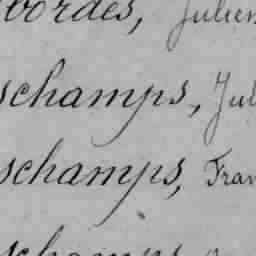 bordes, Julien
schamps, Jul
schamps, Fran
schamps